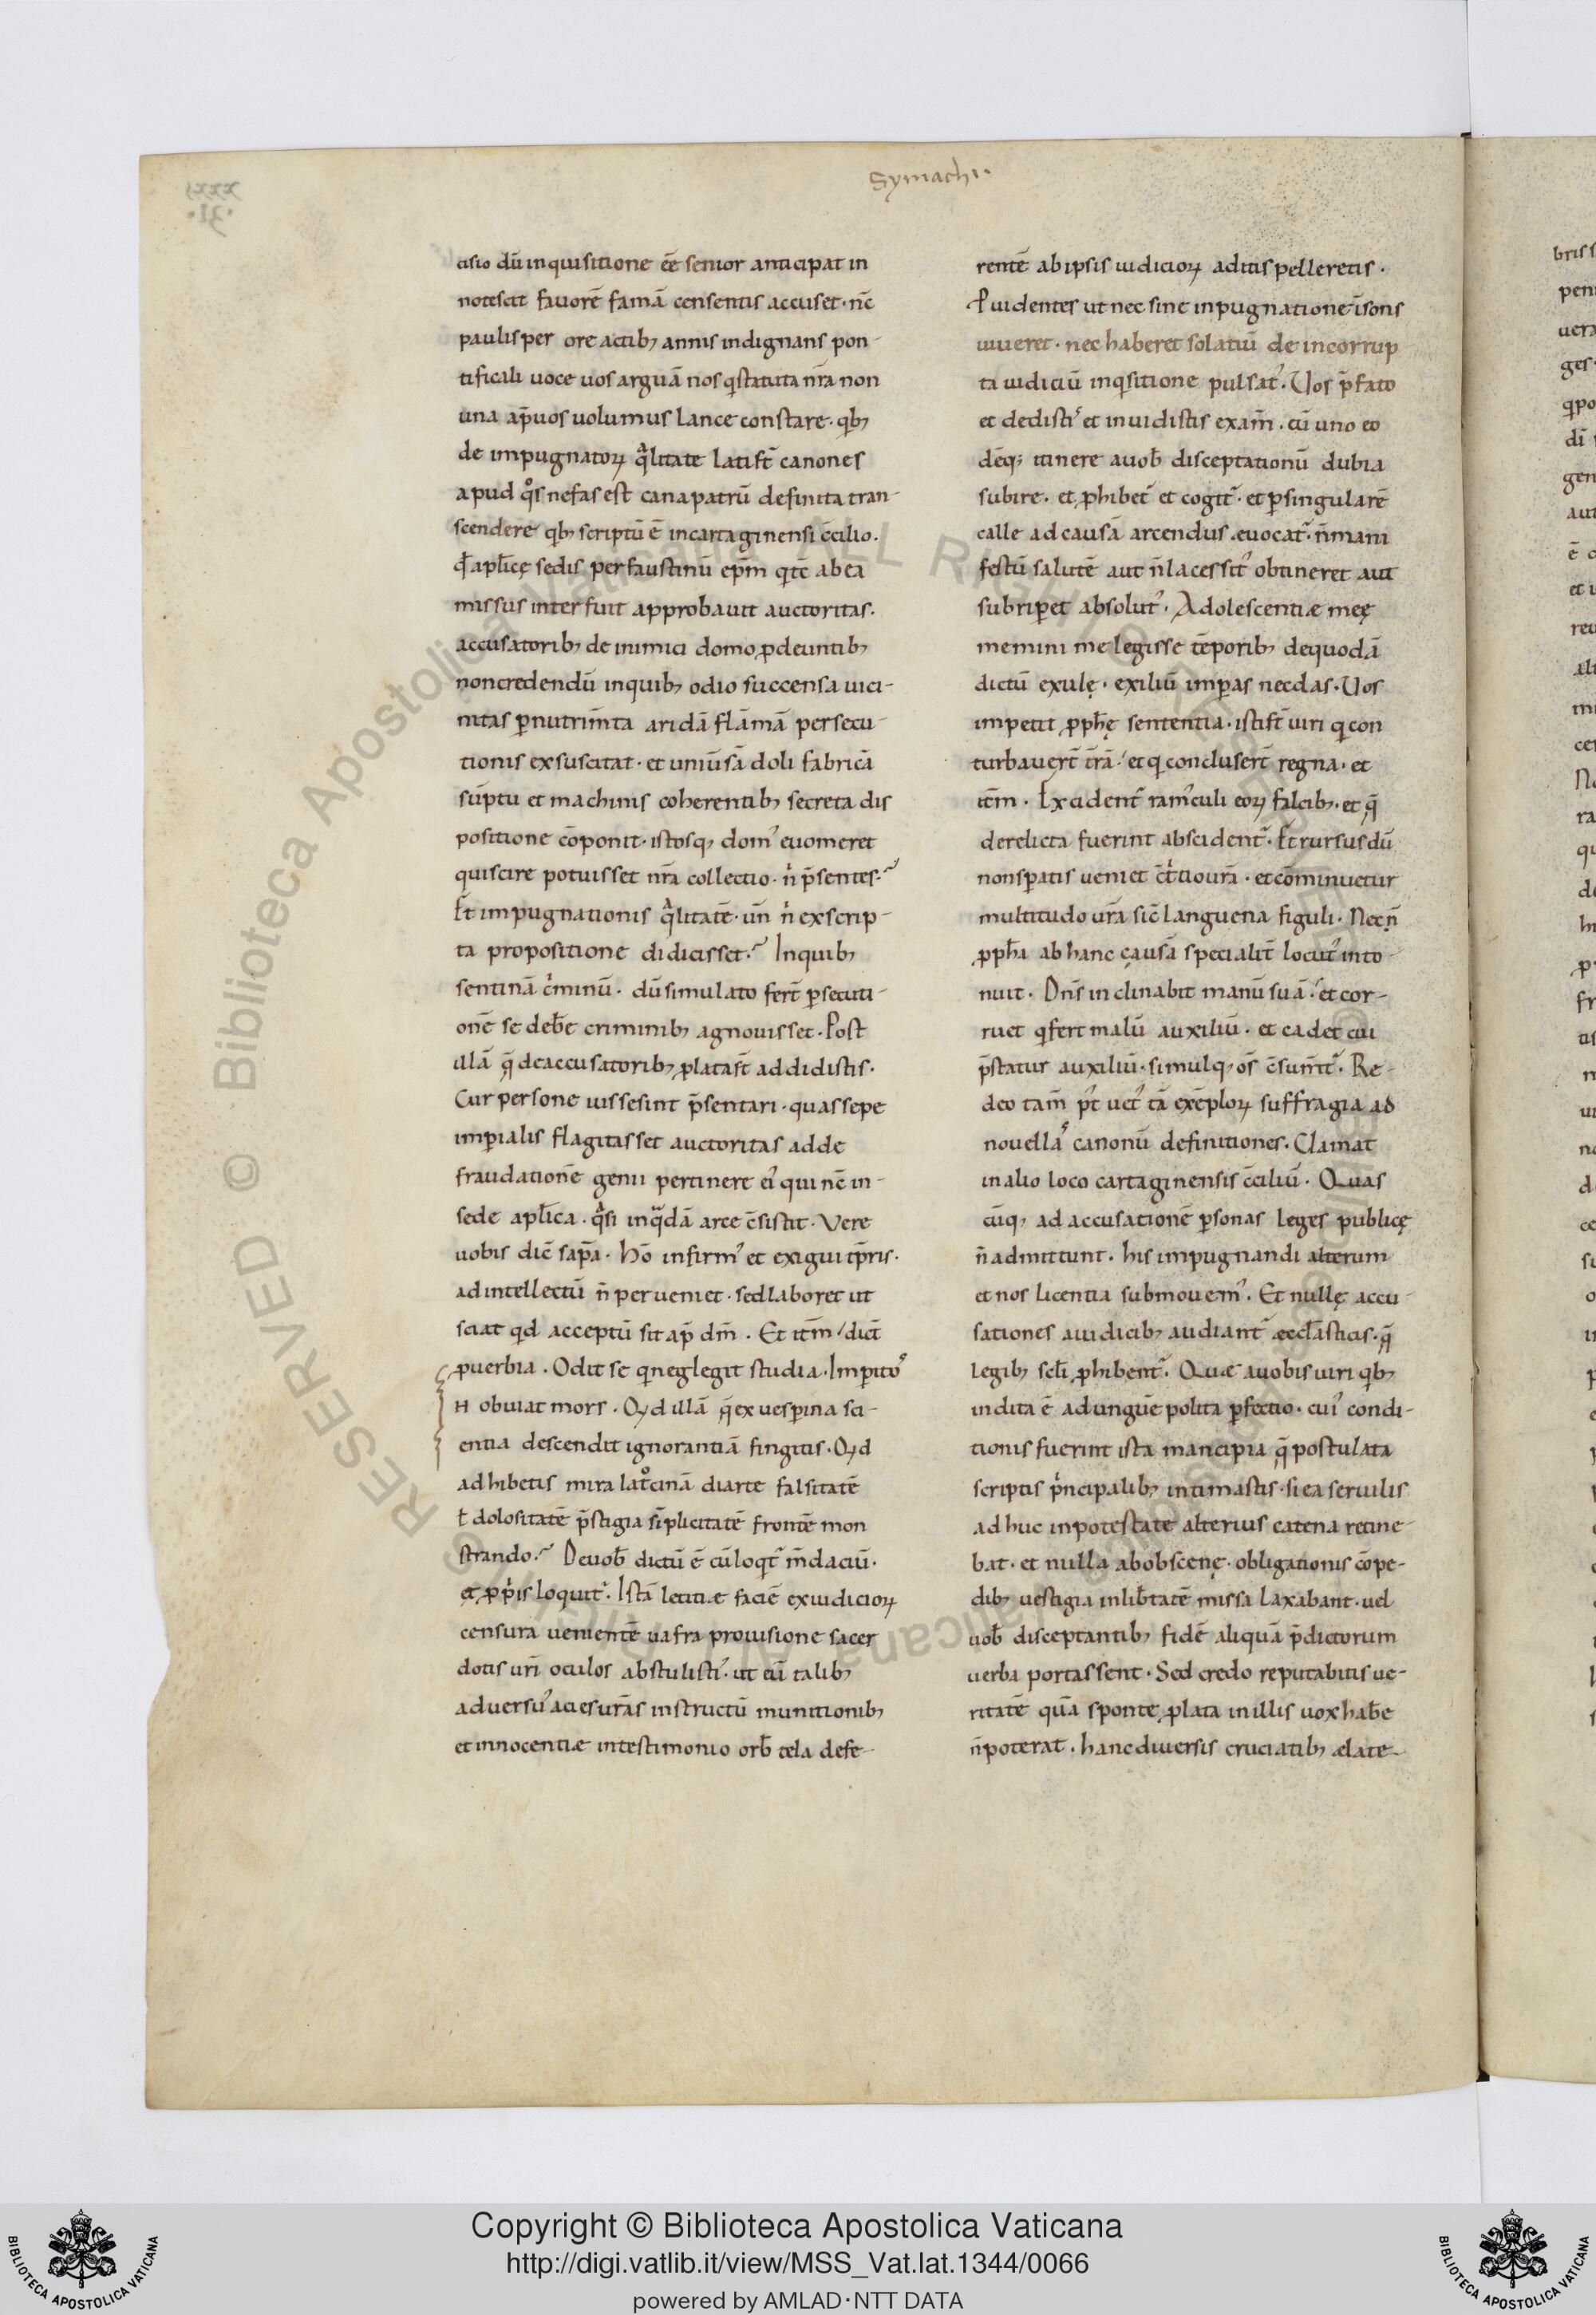 Symachi.
cisio dū inquisitione eē senior anticipat in
notescit fauorē famā censentis accuset· nc̄
paulisper ore actib; annis indignans pon-
tificali uoce uos arguā nos q statuta nr̄a non
una ap̄ uos uolumus lance constare· qb;
de impugnatoꝝ qlitate lati st̄ canones
apud qos nefas est cana patrū definita tran-
scendere qb; scriptū ē in cartaginensi c̄cilio·
qđ apl̄icę sedis per faustinū ep̄m q tc̄ ab ea
missus interfuit approbauit auctoritas.
accusatorib; de inimici domo ꝓdeuntib;
non credendū in quib; odio succensa uici-
nitas ꝑ nutrim̄ta aridā flāmā persecu-
tionis exsuscitat· et uniūsā doli fabricā
sūptu et machinis coherentib; secreta dis
positione cōponit· istosq; dom' euomeret
quis cire potuisset nr̄a collectio· n̍ p̄sentes·
Et impugnationis qlitatē· un̄ n̍ ex scrip-
ta propositione didicisset· In quib;
sentinā c̍minū· dū simulato fert̄ ꝑsecuti-
onē se deb̄e criminib; agnouisset· Post
illā q̄ de accusatorib; ꝓlata st̄ addidistis·
Cur persone uisse sint p̄sentari· quas sepe
imꝑialis flagitasset auctoritas ad de
fraudationē genii pertinere ei' qui nc̄ in-
sede apl̄ica· qsi in qdā arce c̄sistit· Vere
uobis dic̄ sap̄a· Hō infirm' et exigui tp̄ris·
ad intellectū n̄ perueniet· sed laboret ut
sciat qd acceptū sit ap̄ dm̄· Et itm̄ dict̄
ꝓuerbia· Odit se q neglegit studia· Imꝑito'
H obuiat mors· Qd illā q̄ ex uesꝑina sci-
entia descendit ignorantiā fingitis· Qd
adhibetis mira latocinā di arte falsitatē
ł dolositatē p̄stigia sīplicitatē frontē mon
strando· De uob̄ dictū ē cū loqt̄ m̄daciū·
et ꝓpis loquit̄· Istā letitiæ faciē ex iudicioꝝ
censura uenientē uafra prouisione sacer
dotis ur̄i oculos abstulisti'· ut cū talib;
aduersu' acies ur̄as instructū munitionib;
et innocentiæ in testimonio orb̄ tela defe-
rentē ab ipsis iudicioꝝ aditis pelleretis·
Puidentes ut nec sine inpugnatione īsons
uiueret· nec haberet solatiū de incorrup
ta iudiciū inqsitione pulsat'· Uos p̄fato
et dedisti' et inuidistis exam̄· cū uno eo
dēq; itinere a uob̄ disceptationū dubia
subire· et ꝓhibet̄ et cogit̄· et ꝑ singularē
calle ad causā arcendus· euocat̄· n̄ mani
festū salutē aut n̄ lacessit' obtineret aut
subriꝑet absolut'· Adolescentiæ meę
memini me legisse tēporib; de quodā
dictū exulę· exiliū imꝑas nec das· Uos
impetit ꝓph̄ę sententia· isti st̄ uiri q con
turbauert̄ tr̄ā· et q conclusert̄ regna· et
itm̄· Excident̄ ram'culi eoꝝ falcib;· et q̄
derelicta fuerint abscident̄· Et rursus dū
non sꝑatis ueniet c̄t̍tio ur̄a· et cōminuetur
multitudo ur̄a sic̄ languena figuli· Nec n̄
ꝓph̄a ab hanc cąusā specialit̄ locut' into-
nuit· Dn̄s inclinabit manū suā· et cor-
ruet q fert malū auxiliū· et cadet cui
p̄statur auxiliū· simulq; os̄ c̄sum̄t̄· Re-
deo tam̄ pt' uet' tā exēploꝝ suffragia ad
nouella' canonū definitiones· Clamat
in alio loco cartaginensis c̄ciliū· Quas
cūq; ad accusationē ꝑsonas leges publicę
n̄ admittunt· his impugnandi alterum
et nos licentia submouem'· Et nullę accu-
sationes a iudicib; audiant̄ æccl̄asticis· q̄
legib; sc̄li ꝓhibent̄· Quæ a uobis uiri qb;
indita ē ad ungūe polita ꝑfectio· cui' condi-
tionis fuerint ista mancipia q̄ postulata
scriptis pncipalib; intimastis· si ea seruilis
adhuc in potestate alterius catena retine-
bat· et nulla ab obscenę· obligationis cōpe-
dib; uestigia in lib̄tatē missa laxabant· uel
uob̄ disceptantib; fidē aliquā p̄dictorum
uerba portassent· Sed credo reputabitis ue-
ritatē quā sponte ꝓlata in illis uox hab̄e
n̄ poterat· hanc diuersis cruciatib; ælate-
Copyright © Biblioteca Apostolica Vaticana
http://digi.vatlib.it/view/MSS_Vat.lat.1344/0066
powered by AMLAD·NTT DATA